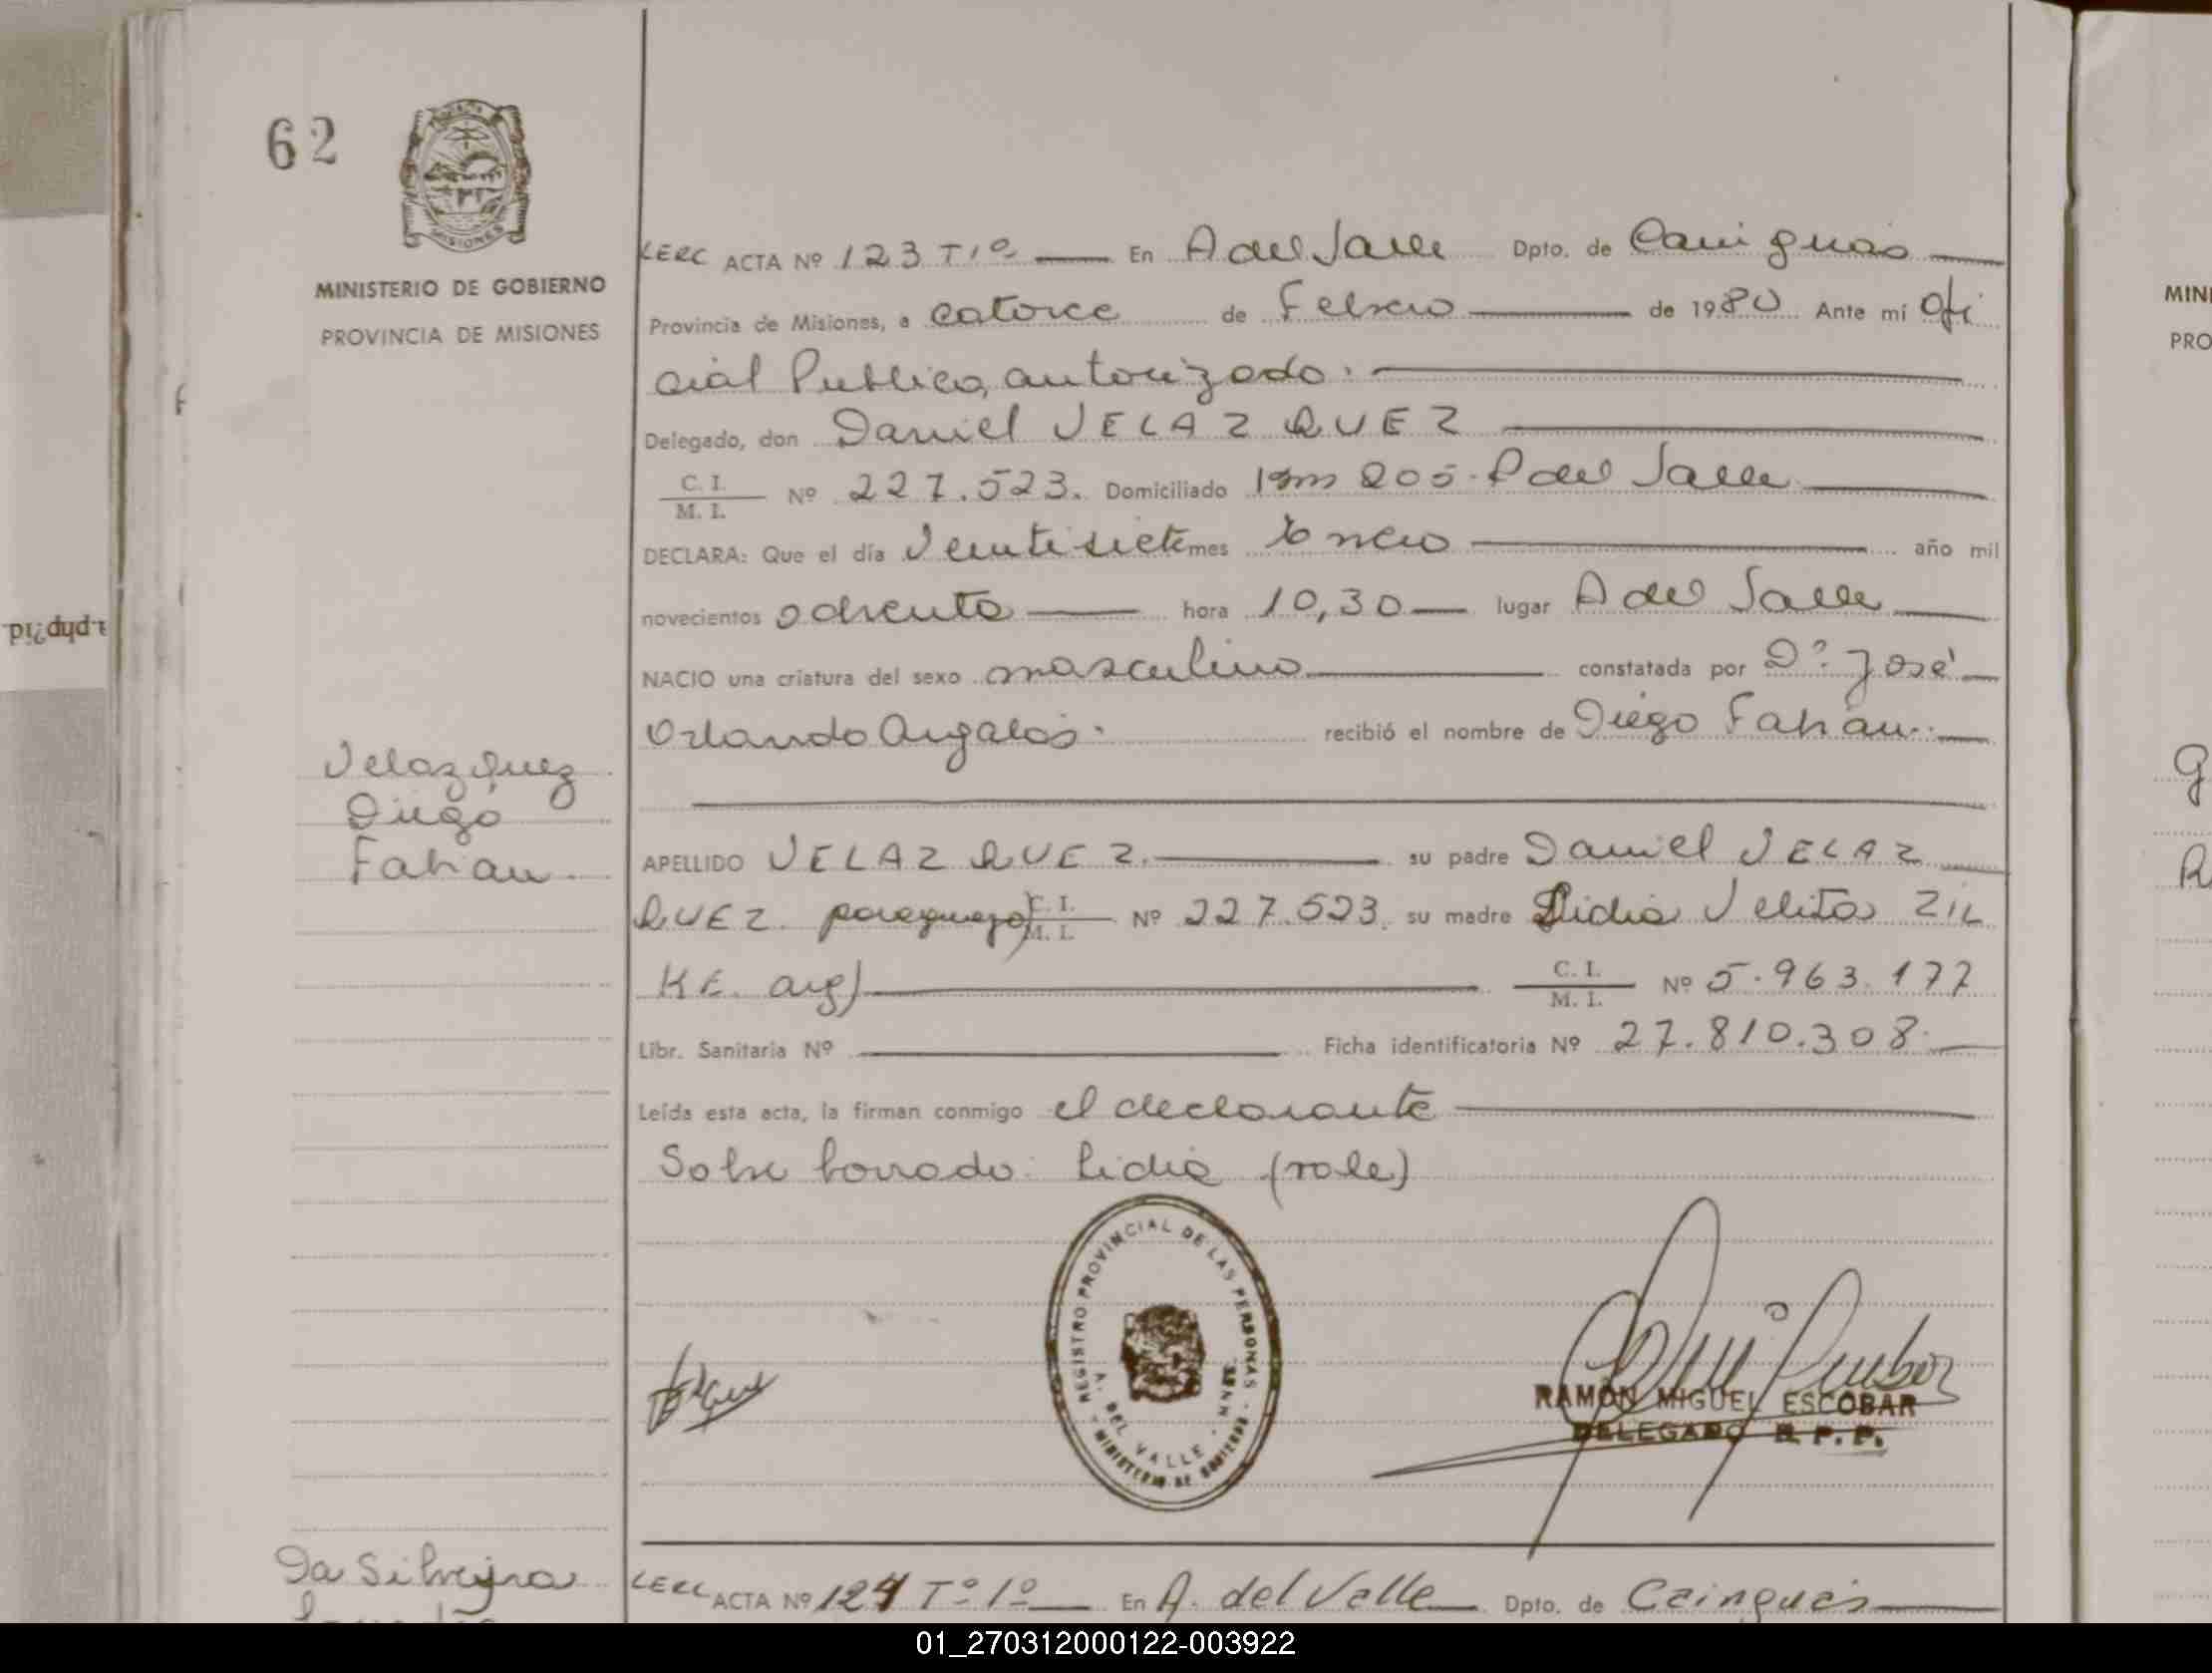 62
MISIONES
MINISTERIO DE GOBIERNO
PROVINCIA DE MISIONES
LERC ACTA Nº 123 Tº 1º En A del Valle Dpto. de Cainguás
Provincia de Misiones, a catorce de Febrero de 1980 Ante mí Ofi
cial Publico, autorizado.
Delegado, don Daniel VELAZQUEZ
C. I.
M. I. Nº 227.523. Domiciliado Km 205. A del Valle
DECLARA: Que el día Veintisiete mes Enero año mil
novecientos ochenta hora 10,30 lugar A del Valle
NACIO una criatura del sexo masculino constatada por Dº. José
Orlando recibió el nombre de Diego Fabian.
Velazquez
Diego
Fabian.
APELLIDO VELAZQUEZ. su padre Daniel VELAZ
QUEZ. paraguayo) C. I. M. I. Nº 227.523. su madre Lidia Velita ZIL
KE. arg) C. I. M. I. Nº 5.963.177
Libr. Sanitaria Nº Ficha identificatoria Nº 27.810.308.
Leída esta acta, la firman conmigo el declarante
Sobre borrado: Lidia (vale)
REGISTRO PROVINCIAL DE LAS PERSONAS - MNES.
A. DEL VALLE
MINISTERIO DE GOBIERNO
RAMÓN MIGUEL ESCOBAR
DELEGADO R. P. P.
Da Silveyra
LERC ACTA Nº 124 Tº 1º En A. del Valle Dpto. de Cainguás
r.php?id
MINI
PRO
01_270312000122-003922